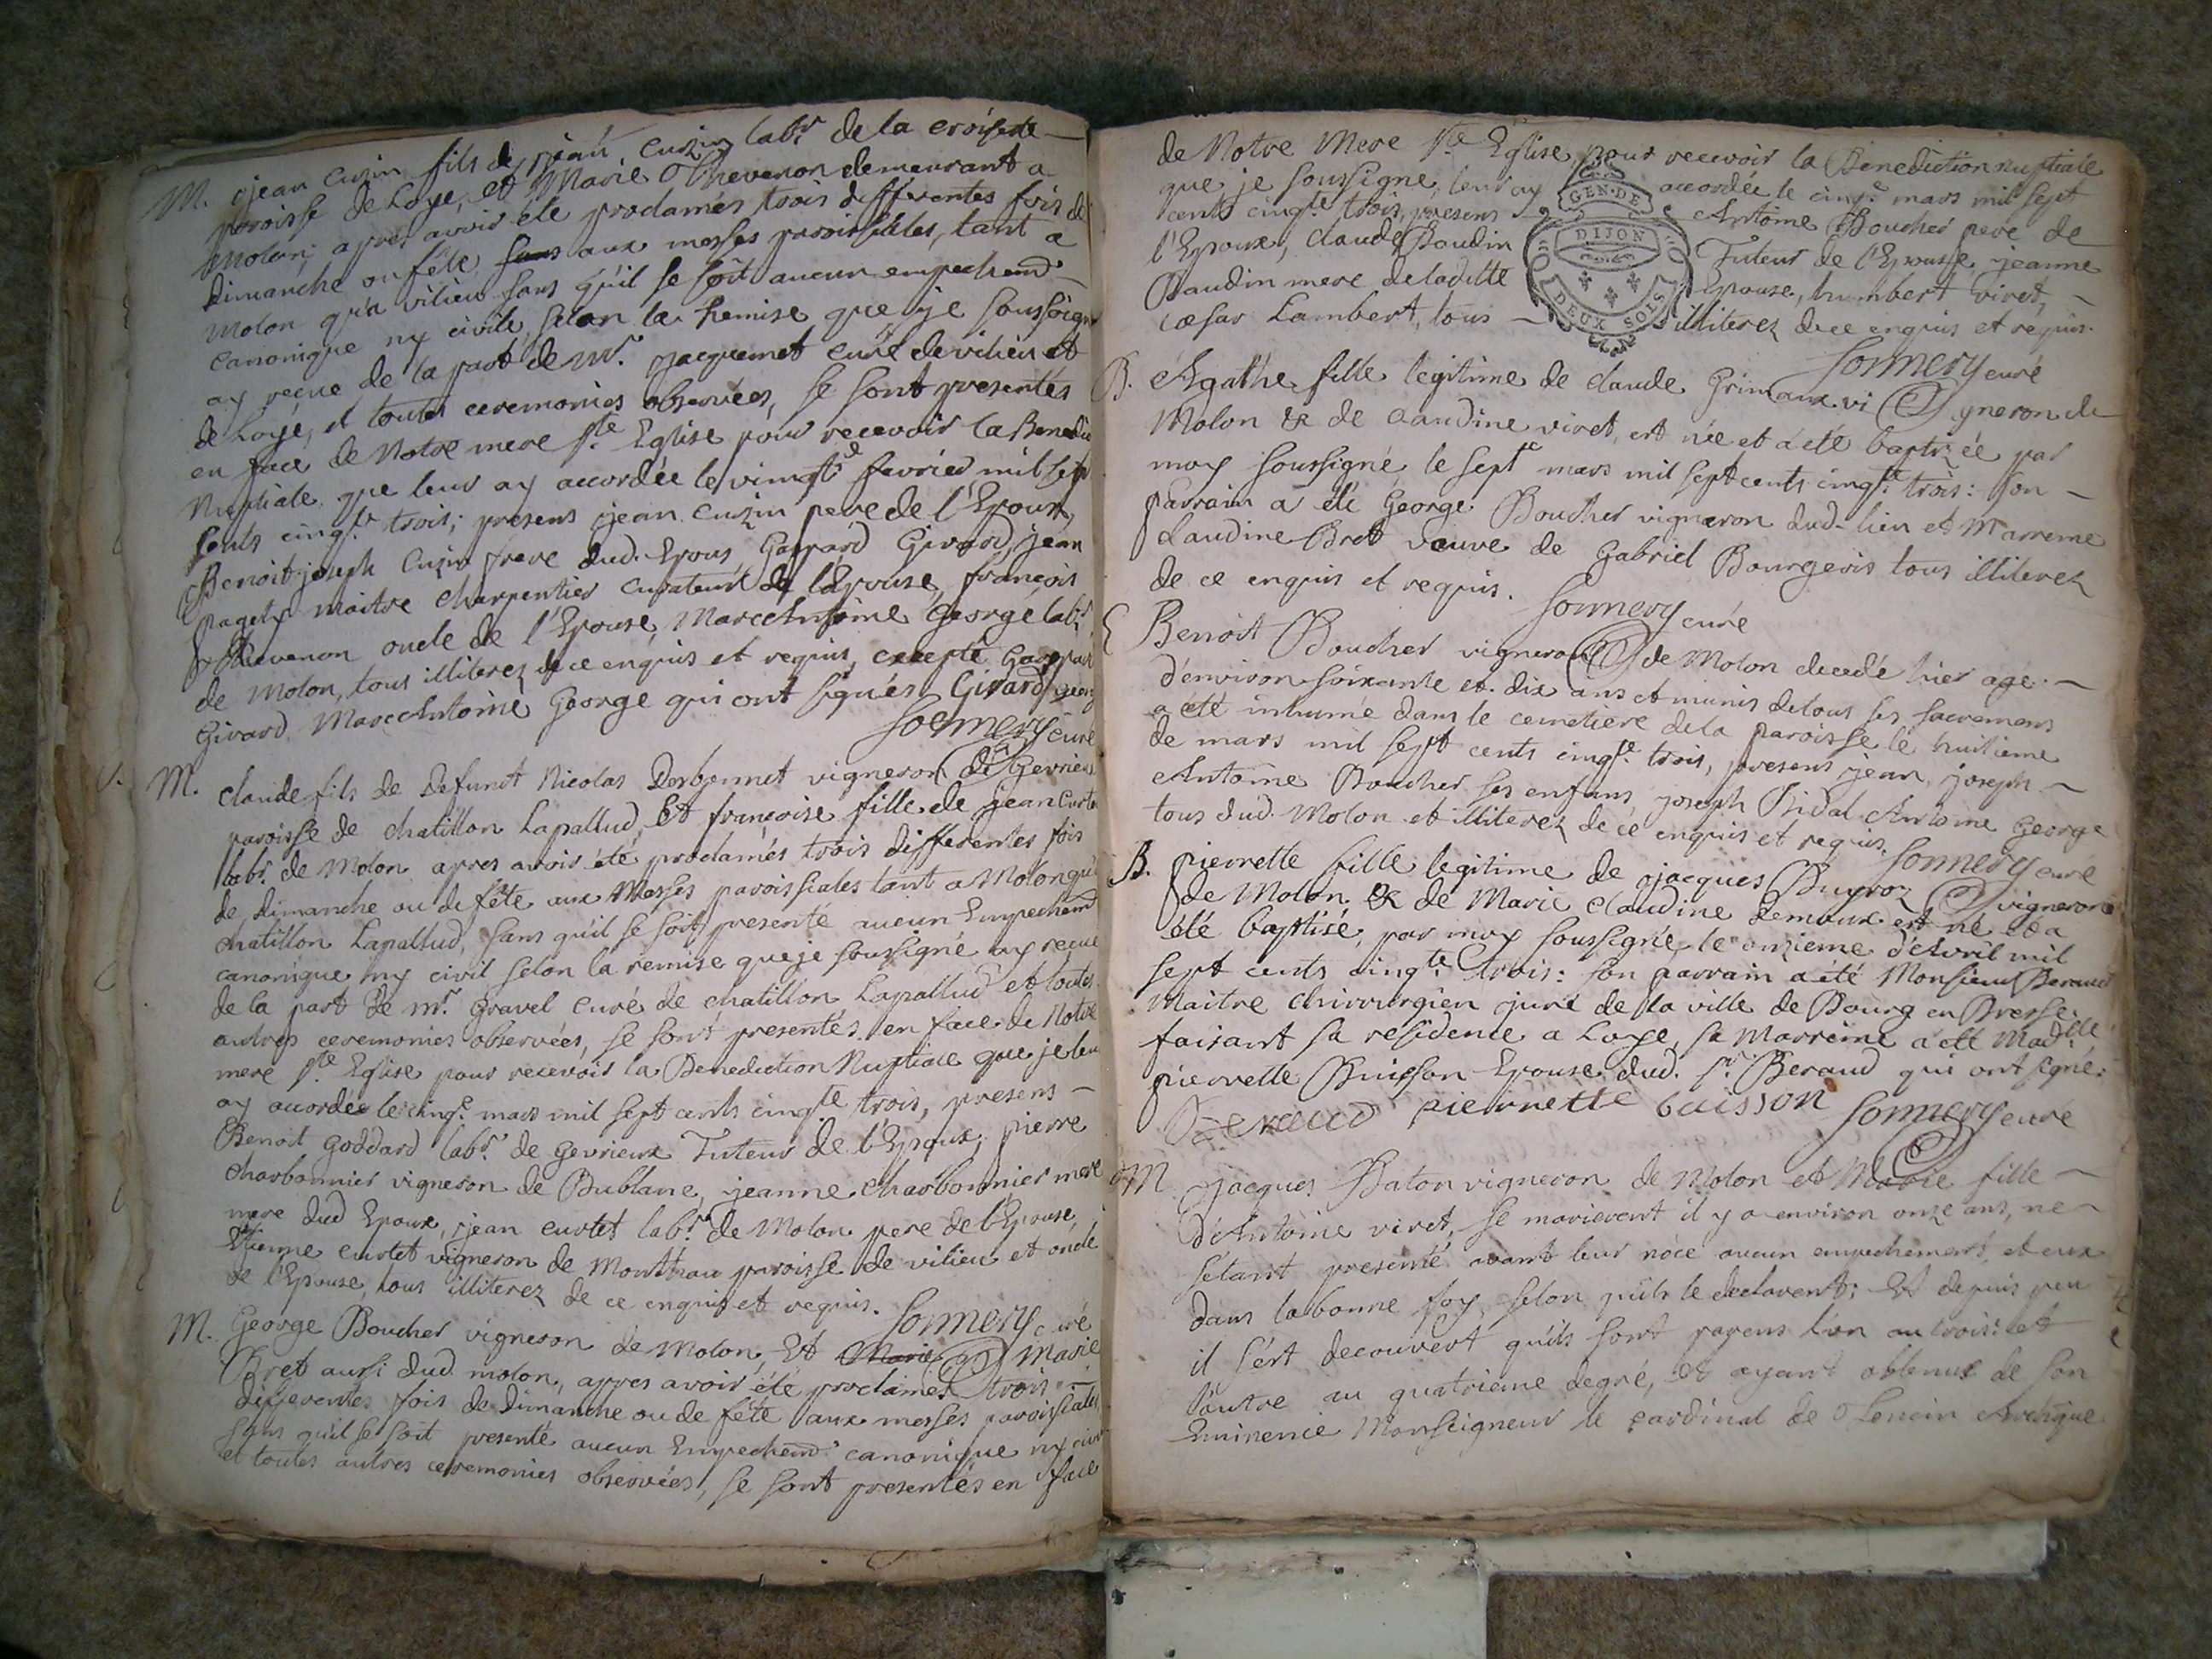 M. jean cuzin fils de jean cuzin labr. de la croisette
paroisse de Loye, et Marie Thevenon demeurant a
Molon; apres avoir été proclamés trois differentes fois de
dimanche ou fête aux messes paroissiales, tant a
Molon qu'a vilieu sans qu'il se soit aucun empechemt
canonique ny civile, selon la remise que je soussigné
ay reçue de la part de mr. jacquemet curé de vilieu et
de Loyé, et toutes ceremonies observées, se sont presentés
en face de Notre mere ste Eglise pour recevoir la Benedic
Nuptiale que leur ay accordée le vingte fevrier mil sept
cents cinqte trois; presens jean cuzin pere de l'Epoux,
Benoit joseph Cuzin frere dud. Epous, Gaspard Girard, jean
paget maitre charpentier curateur de l'Epouse, françois
Thevenon oncle de l'Epouse, Marc Antoine George labr
de Molon, tous illiterez de ce enquis et requis, excepté Gaspar
Girard Marc Antoine George qui ont signés. Girard george
Sonnery curé
M. claude fils de Defunct Nicolas Dorbennet vigneron de Gevrieu
paroisse de chatillon Lapallud, Et françoise fille de jean Curtet
labr. de Molon apres avoir été proclamés trois differentes fois
de dimanche ou de fête aux Messes paroissiales tant a Molon qu'a
chatillon Lapallud, sans qu'il se soit presenté aucun Empechemt
canonique ny civil selon la remise que je soussigné ay reçue
de la part de mr. Gravel curé de chatillon Lapallud et toutes
autres ceremonies observées, se sont presentés en face de Notre
mere ste. Eglise pour recevoir la Benediction Nuptiale que je leur
ay accordée le cinqe. mars mil sept cents cinqte trois, presens
Benoit Goddard labr. de Gevrieux Tuteur de l'Epoux, pierre
charbonnier vigneron de Bublane, jeanne charbonnier mere
mere dud Epoux, jean curtet labr. de Molon pere de l'Epouse,
Etienne curtet vigneron de Monthau paroisse de vilieu et oncle
de l'Epouse, tous illiterez de ce enquis et requis. Sonnery curé
M. George Boucher vigneron de Molon, Et Marie Marie
Bret aussi dud. molon, apres avoir été proclamés trois
differentes fois de dimanche ou de fête aux messes paroissiales
sans qu'il se soit presenté aucun Empechemt. canonique ny civil
et toutes autres ceremonies observées, se sont presentés en face
de Notre Mere ste Eglise pour recevoir la Benediction nuptiale
que je soussigné leur ay accordée le cinqe mars mil sept
cents cinqte trois, presens Antoine Boucher pere de
l'Epoux, claude Baudin Tuteur de l'Epouse, jeanne
Baudin mere de laditte Epouse, humbert viret,
cæsar Lambert, tous illiterez de ce enquis et requis.
GEN. DE
DIJON
DEUX SOLS
Sonnery curé
B. Agathe fille legitime de claude Grimaux vigneron de
Molon & de claudine viret, est née et a été baptizée par
moy soussigné le septe mars mil sept cents cinqte. trois: son
parrain a été George Boucher vigneron dud. lieu et Marreine
claudine Bret veuve de Gabriel Bourgeois tous illiterez
de ce enquis et requis. Sonnery curé
Benoit Boucher vigneron de Molon decedé hier agé
d'environ soixante et dix ans et munis de tous ses sacremens
a été inhumé dans le cemetière de la paroisse le huitieme
de mars mil sept cents cinqte. trois, presens jean, joseph
Antoine Boucher ses enfans, joseph Bidal Antoine George
tous dud. Molon et illiterez de ce enquis et requis. Sonnery curé
B. pierrette fille legitime de jacques Buyroz vigneron
de Molon & de Marie claudine Demoux est né et a
été baptisé par moy soussigné le onzieme d'Avril mil
sept cents cinqte. trois: son parrain a été Monsieur Beraud
Maitre chirurgien juré de la ville de Bourg en Bresse
faisant sa residence a Loye, sa Marreine a été Madlle.
pierrette Buisson Epouse dud. sr. Beraud qui ont signé.
Beraud pierrette buisson Sonnery curé
M jacques Baton vigneron de Molon et Marie fille
d'Antoine viret, se marierent il y a environ onze ans, ne
s'étant presenté avant leur nôce aucun empechement, et eux
dans la bonne foy, selon qu'ils le declarent; Et depuis peu
il s'est decouvert qu'ils sont parens l'un au trois: et
l'autre au quatrieme degré, et ayant obtenus de son
Eminence Monseigneur le cardinal de Tencin Archeque